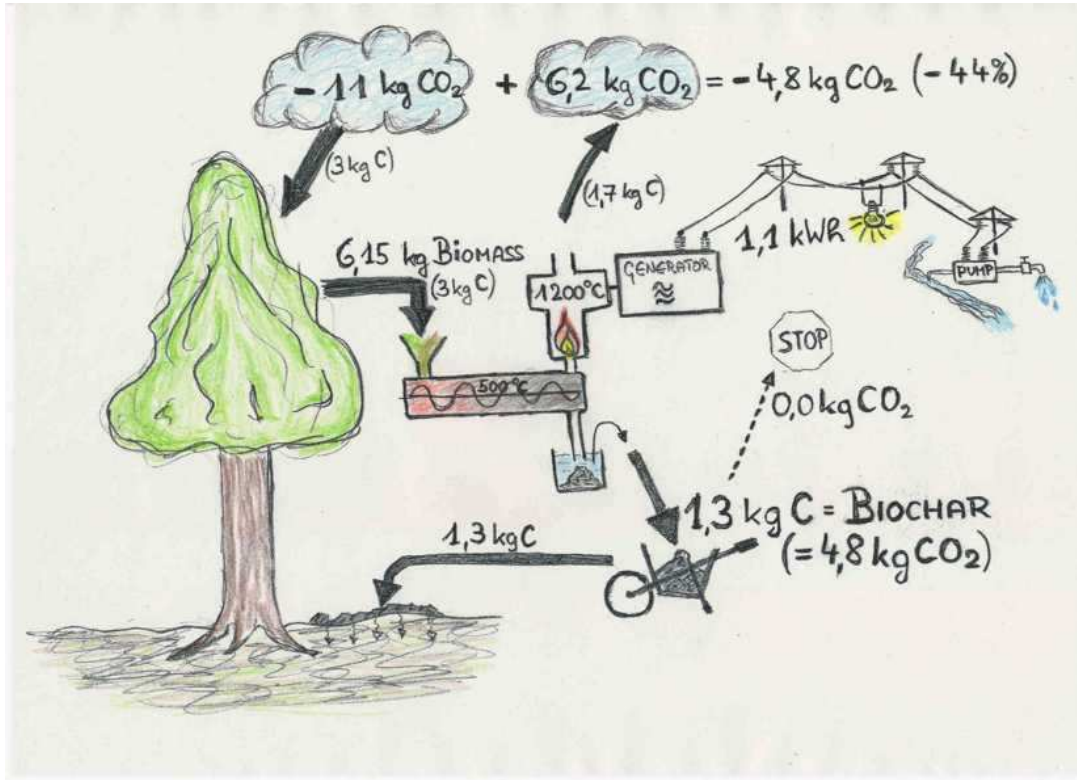 - 11 kg CO₂ + 6,2 kg CO₂ = - 4,8 kg CO₂ (- 44%)
(3 kg C)
(1,7 kg C)
6,15 kg BIOMASS
(3 kg C)
1200°C
GENERATOR
1,1 kWh
PUMP
500°C
STOP
0,0 kg CO₂
1,3 kg C = BIOCHAR
(= 4,8 kg CO₂)
1,3 kg C